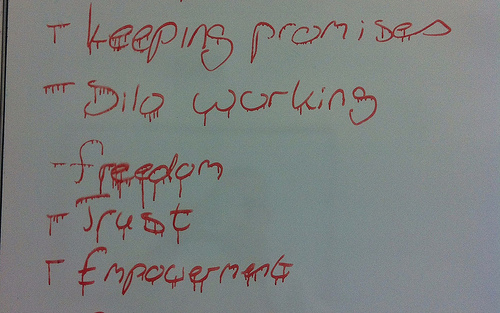 - keeping promises
- Dilo working
- freedom
- Trust
- Empowerment